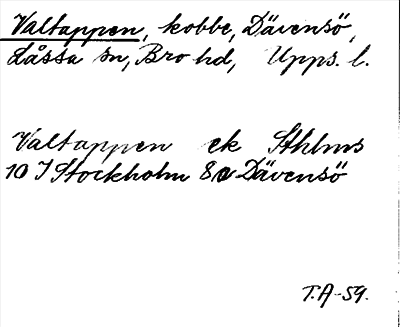 Valtappen, kobbe, Dävensö,
Låssa sn, Bro hd, Upps. l.
Valtappen ek Sthlms
10 I Stockholm 8 Dävensö
T.A-59.